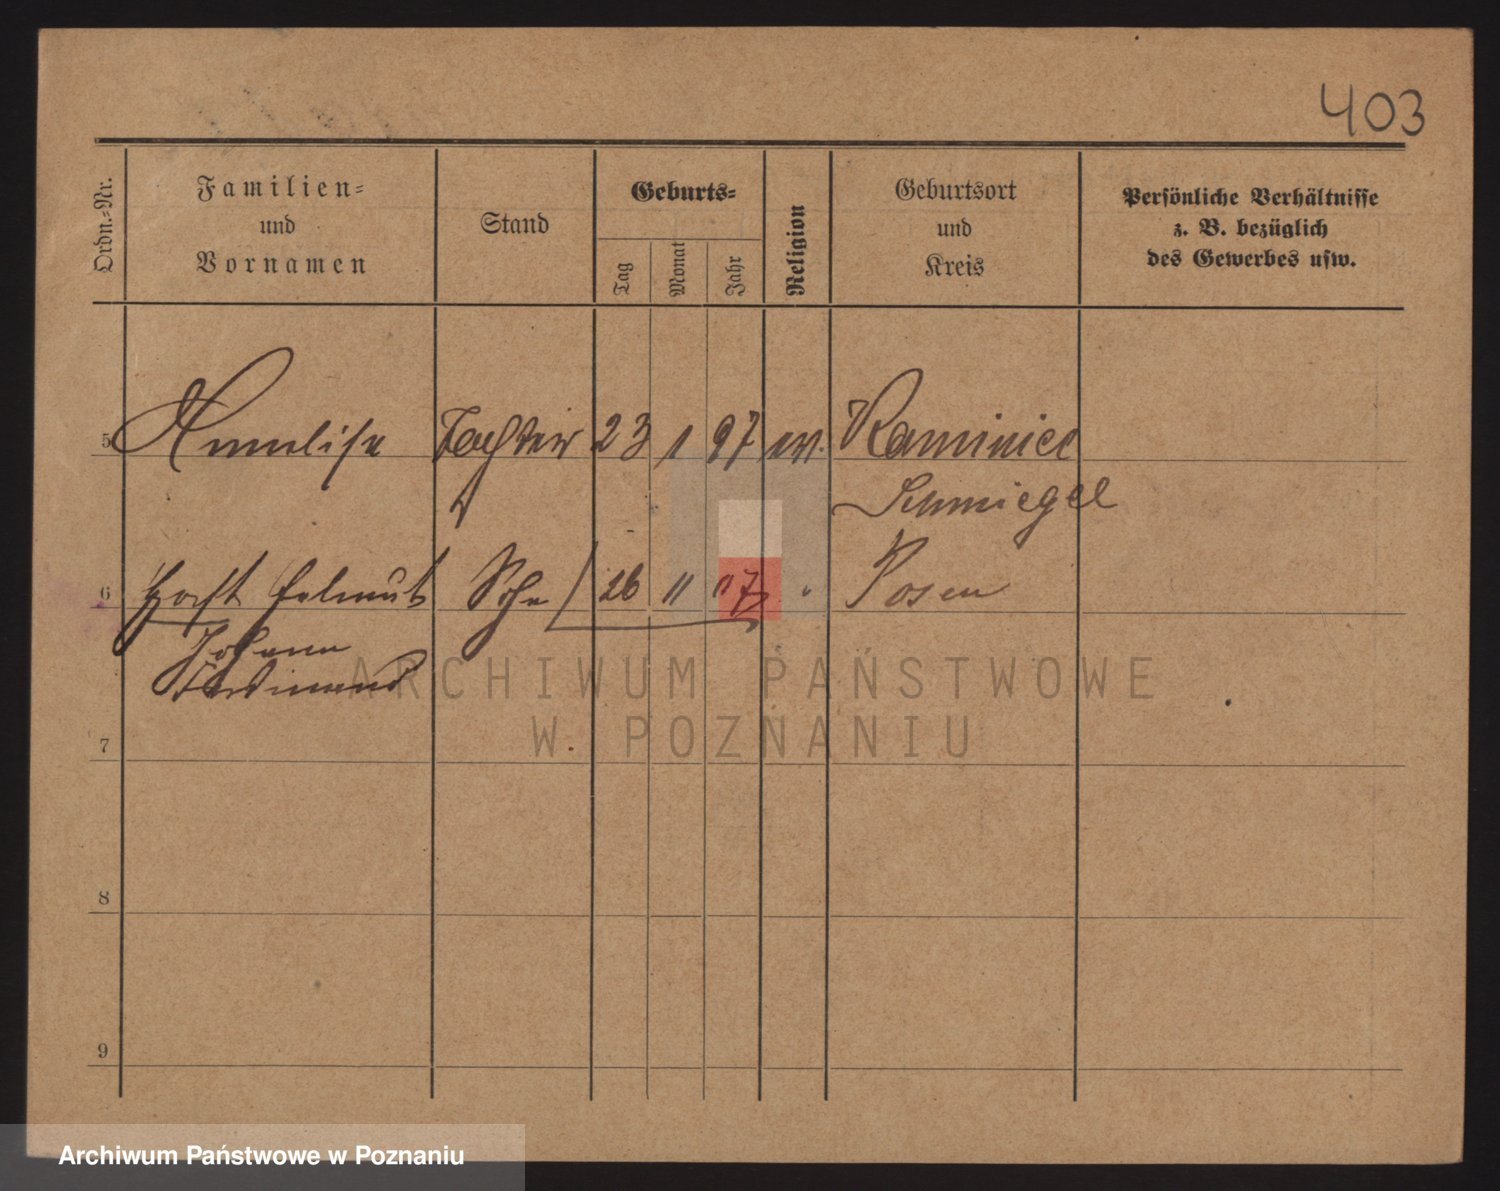 403
Ordn.-Nr.
Familien-
und
Vornamen
Stand
Geburts-
Tag
Monat
Jahr
Religion
Geburtsort
und
Kreis
Persönliche Verhältnisse
z. B. bezüglich
des Gewerbes usw.
5 Annelise Tochter 23 1 97 ev. Kaminiec
Schmiegel
6 Horst Helmut Sohn 26 11 17 " Posen
Johann
Ferdinand
ARCHIWUM PAŃSTWOWE
W POZNANIU
7
8
9
Archiwum Państwowe w Poznaniu